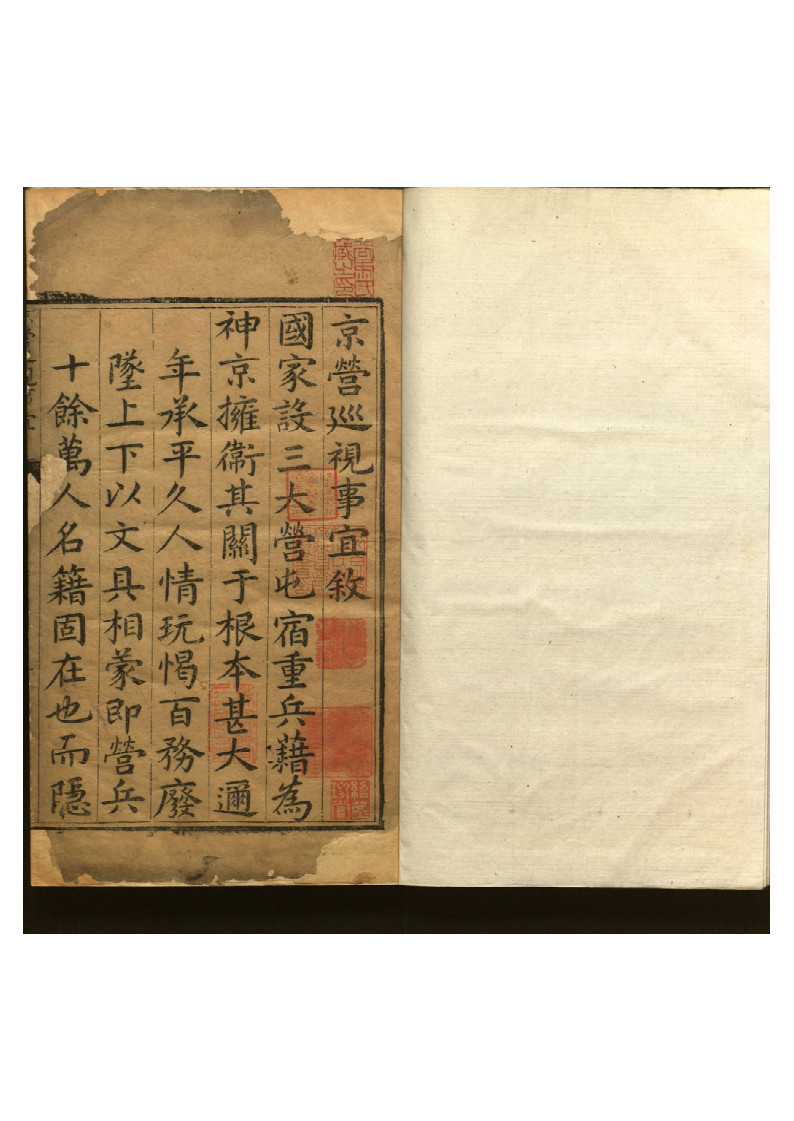 京營巡視事宜敘
國家設三大營屯宿重兵藉為
神京擁衛其關于根本甚大邇
年承平久人情玩愒百務廢
墜上下以文具相蒙即營兵
十餘萬人名籍固在也而隱